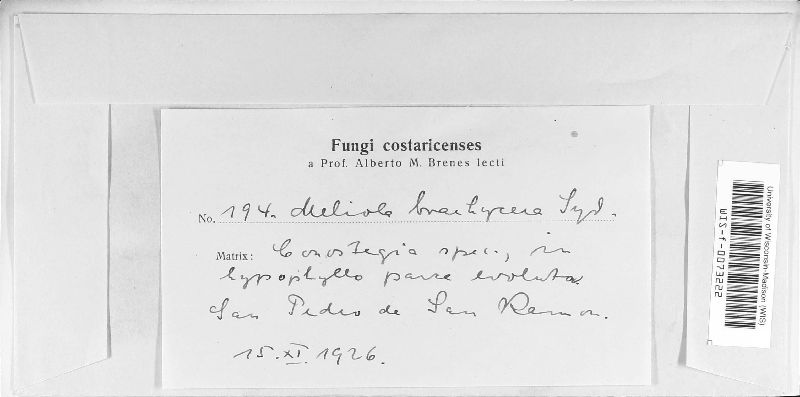 Fungi costaricenses
a Prof. Alberto M. Brenes lecti
No. 194. Meliola brachycera Syd.
Matrix: Conostegia spec., in
hypophyllo parce evoluta.
San Pedro de San Ramon.
15. XI. 1926.
University of Wisconsin-Madison (WIS)
WIS-f-0073222